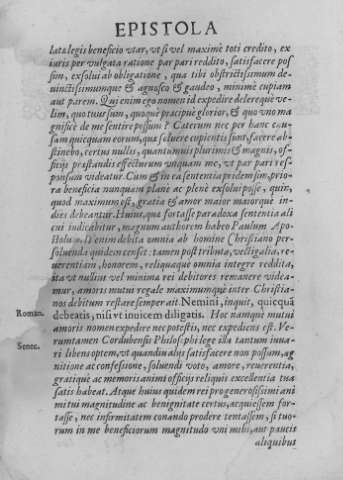 EPISTOLA
latæ legis beneficio vtar, vt si vel maxime toti credito, ex
iuris per vulgata ratione par pari reddito, satisfacere pos
sim, exsolui ab obligatione, qua tibi obstrictissimum de-
uinctissimumque & agnosco & gaudeo, minimè cupiam
aut parem. Qui enim ego nomen id expedire delereque ve-
lim, quo tuus sum, quoque præcipuè glorior, & quo vno ma
gnificè de me sentire possum? Cæterum nec per hanc cau-
sam quicquam eorum, quæ soluere cupientis sunt, facere ab-
stinebo, certus nullis, quantumuis plurimis & magnis, of-
ficijs præstandis effecturum vnquam me, vt par pari res-
ponsum videatur. Cum & in ea sententia pridem sim, prio-
ra beneficia nunquam planè ac plenè exsolui posse, quin,
quod maximum est, gratia & amor maior maiorque in-
dies debeantur. Huius, quæ fortasse paradoxa sententia ali
cui iudicabitur, magnum authorem habeo Paulum Apo-
stolum. Is enim debita omnia ab homine Christiano per-
soluenda quidem censet: tamen post tributa, vectigalia, re-
uerentiam, honorem, reliquaque omnia integrè reddita,
ita vt nullius vel minima rei debitores remanere videa-
mur, amoris mutui regale maximumque inter Christia-
nos debitum restare semper ait. Nemini, inquit, quicquã
Roman. debeatis, nisi vt inuicem diligatis. Hoc namque mutui
amoris nomen expedire nec potestis, nec expediens est. Ve-
Senec. rumtamen Cordubensis Philosophi lege illa tantum iuua-
ri libens optem, vt quandiu alijs satisfacere non possum, ag
nitione ac confessione, soluendi voto, amore, reuerentia,
gratique ac memoris animi officijs reliquis excellentia tua
satis habeat. Atque huius quidem rei progenerosissimi ani
mi tui magnitudine ac benignitate certus, acquiescem for-
tasse, nec infirmitatem conando prodere tentassem, si tuo-
rum in me beneficiorum magnitudo vni mihi, aut paucis
aliquibus